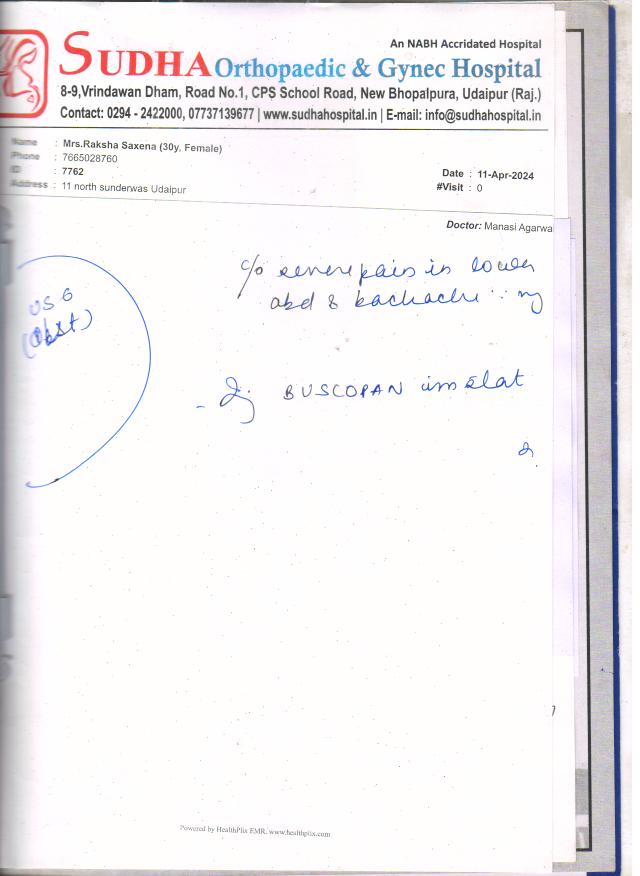 An NABH Accridated Hospital
SUDHA Orthopaedic & Gynec Hospital
8-9,Vrindawan Dham, Road No.1, CPS School Road, New Bhopalpura, Udaipur (Raj.)
Contact: 0294 - 2422000, 07737139677 | www.sudhahospital.in | E-mail: info@sudhahospital.in
Name : Mrs.Raksha Saxena (30y, Female)
Phone : 7665028760
ID : 7762
Address : 11 north sunderwas Udaipur
Date : 11-Apr-2024
#Visit : 0
Doctor: Manasi Agarwa
c/o severe pain in lower
abd & backache
USG
(Obst)
- Inj BUSCOPAN im stat
Powered by HealthPlix EMR. www.healthplix.com